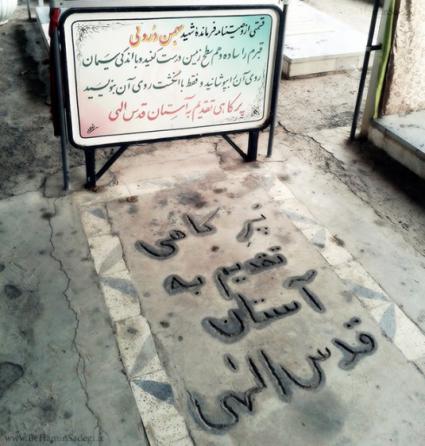 قسمتی از وصیتنامه فرمانده شهید بهمن دُرولی
قبرم را ساده و هم سطح زمین درست کنید و با اندکی سیمان
روی آن را بپوشانید و فقط با انگشت روی آن بنویسید
پرِ کاهی تقدیم به آستان قدس الهی
پَرِ کاهی
تقدیم به
آستان
قدس الهی
www.BeHaminSadegi.ir